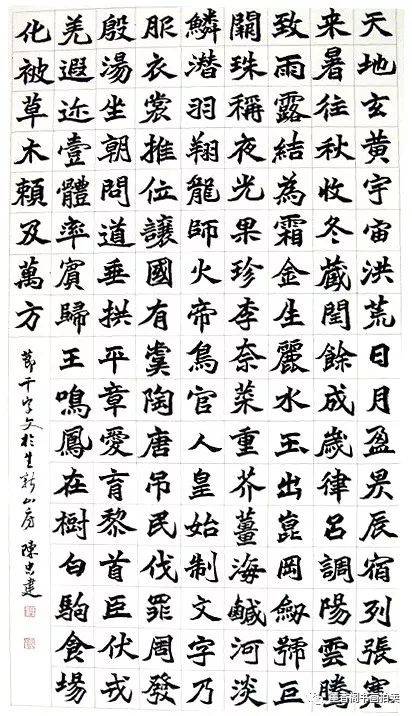 天地玄黃宇宙洪荒日月盈昃辰宿列張寒
来暑往秋收冬藏閏餘成歲律吕調陽雲騰
致雨露結為霜金生麗水玉出崑岡劒號巨
闕珠稱夜光果珍李柰菜重芥薑海鹹河淡
鱗潛羽翔龍師火帝鳥官人皇始制文字乃
服衣裳推位讓國有虞陶唐吊民伐罪周發
殷湯坐朝問道垂拱平章愛育黎首臣伏戎
羌遐迩壹體率賓歸王鳴鳳在樹白駒食場
化被草木賴及萬方
節千字文於生新山房 陳忠建